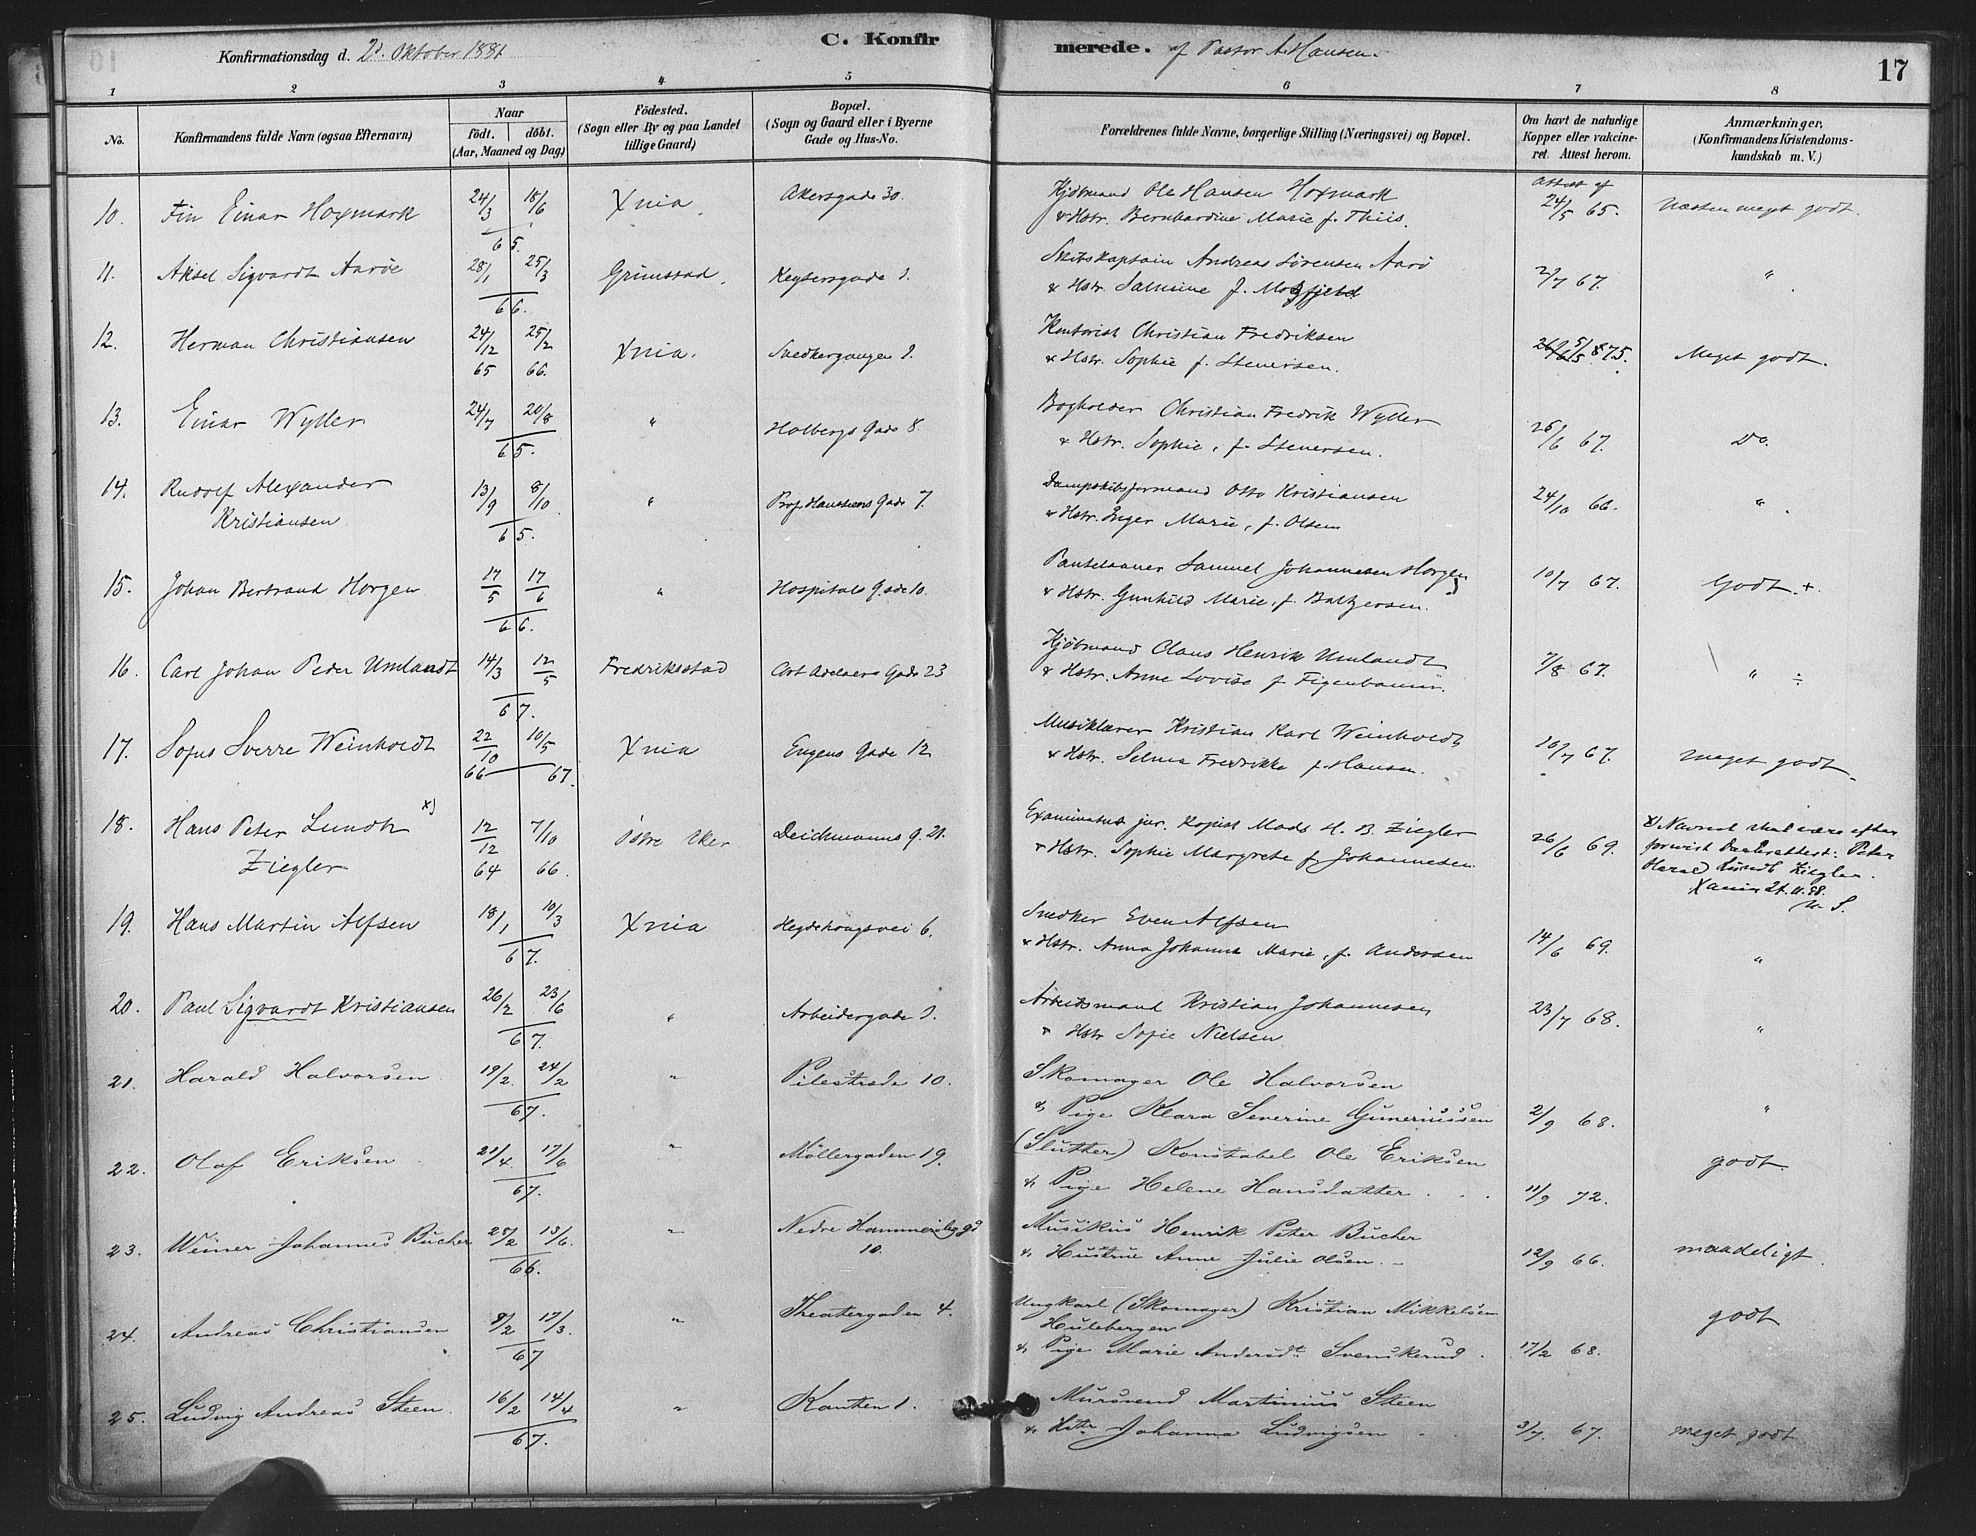 Konfirmationsdag d. 2. Oktober 1881
C. Konfirmerede. af Pastor A. Hansen.
17
1 2 3 4 5 6 7 8
No.
Konfirmandens fulde Navn (ogsaa Efternavn)
Naar
födt. | döbt.
(Aar, Maaned og Dag)
Födested.
(Sogn eller By og paa Landet
tillige Gaard)
Bopæl.
(Sogn og Gaard eller i Byerne
Gade og Hus-No.
Forældrenes fulde Navne, borgerlige Stilling (Næringsvei) og Bopæl.
Om havt de naturlige
Kopper eller vakcine-
ret. Attest herom.
Anmærkninger,
(Konfirmandens Kristendoms-
kundskab m. V.)
10. Fin Einar Hoxmark 24/3 18/6 Xnia. Akersgade 30. Kjöbmand Ole Hansen Hoxmark Attest af 24/5 65. Næsten meget godt.
65. & Hstr. Bernhardine Marie f. Thiis.
11. Aksel Sigvardt Aaröe 28/1 25/3 Grimstad. Keysersgade 1. Skibskaptain Andreas Sörensen Aarö 2/7 67. "
66. & Hstr. Salmine f.
12. Herman Christiansen 24/12 25/2 Xnia. Snedkergangen 1. Kontorist Christian Fredriksen Meget godt.
65 66. & Hstr. Sophie f. Stenersen.
13. Einar Wyller 24/7 20/8 " Holbergs Gade 8. Bogholder Christian Fredrik Wyller 26/6 67. Do.
65. & Hstr. Sophie, f. Stenersen.
14. Rudolf Alexander 13/9 8/10 " Prof. Hansteens Gade 7. Dampskibsformand Otto Kristiansen 24/10 66. "
Kristiansen 65. & Hstr. Inger Marie, f. Olsen
15. Johan Bertrand Horgen 17/5 17/6 " Hospitals Gade 10. Pantelaaner Samuel Johannesen Horgen 10/7 67. Godt. +.
66. & Hstr. Gunhild Marie, f. Baltzersen.
16. Carl Johan Peder Umlandt 14/3 12/5 Fredriksstad Cort Adelaers Gade 23 Kjöbmand Claus Henrik Umlandt 7/8 67. " ÷
67. & Hstr. Anne Lovise f.
17. Sofus Sverre Weinholdt 22/10 10/5 Xnia Eugens Gade 12 Musiklærer Kristian Karl Weinholdt 10/7 67. meget godt.
66 67. & Hstr. Selma Fredrikke f. Hansen.
18. Hans Peter Lundh x) 12/12 7/10 Östre Aker Deichmanns g. 21. Examinatus jur. Kopist Mads H. B. Ziegler 26/6 69. x) Navnet skal være efter
Ziegler 64 66. & Hstr. Sophie Margrete f. Johannesen forevist Daabsattest: Peter
Harald Lundh Ziegler.
Xania 21.11.98.
19. Hans Martin Alfsen 18/1 10/3 Xnia Hegdehaugsvei 6. Snedker Even Alfsen 14/6 69. "
67. & Hstr. Anna Johanna Marie, f. Andersen
20. Paul Sigvardt Kristiansen 26/2 23/6 " Arbeidergade 1. Arbeidsmand Kristian Johannesen 23/7 68. "
67. & Hstr Sofie Nielsen
21. Harald Halvorsen 19/2. 24/2 " Pilestrede 10. Skomager Ole Halvorsen
67. & Pige Klara Severine Guneriussen 2/9 68. "
22. Olaf Eriksen 21/4 17/6 " Möllergaden 19. (Slutter) Konstabel Ole Eriksen godt.
67. & Pige Helene Hansdatter 11/9 72.
23. Weiner Johannes Bücher 28/2 13/6. " Nedre Hammersborg gd Musikus Henrik Peter Bücher maadeligt.
66. 10. & Hustrue Anne Julie Olsen. 12/9 66.
24. Andreas Christiansen 9/2 17/3. " Theatergaden 4. Ungkarl (Skomager) Kristian Mikkelsen godt
Hulebergen
67 & Pige Marie Andersdt. Svenskerud. 17/2 68.
25. Ludvig Andreas Steen. 16/2 14/4 " Kanten 1. Mursvend Martinius Steen
67. & Hstr Johanna Ludvigsen 3/7. 67. meget godt